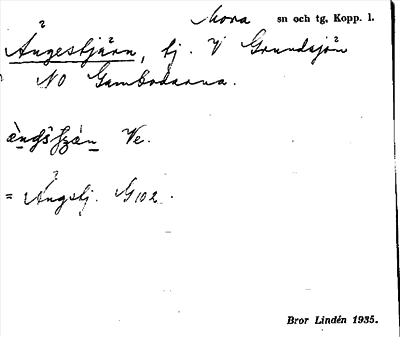 Mora sn och tg, Kopp. l.
Ångestjärn, tj. V Grundsjön
NO Gambodarna.
Ve.
= Ångstj. G102.
Bror Lindén 1935.